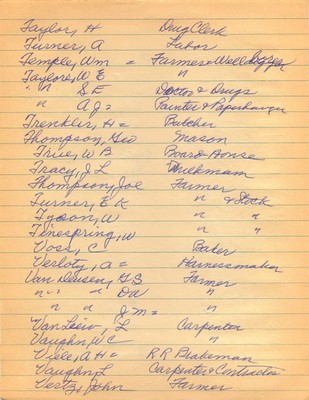 Taylor, H Drug Clerk
Turner, A Labor
Temple, Wm = Farmer & Well Digger
Taylore, W E "
" " S E Doctor & Drugs
" A J = Painter & Paperhanger
Trenkler, H = Butcher
Thompson, Geo Mason
Trice, W B Board House
Tracy, J L
Thompson, Joe Farmer
Turner, E K " & Stock
Tyson, W " "
Tinespring, W " "
Voss, C Baker
Verloty, A = Harnessmaker
Van Deusen, G S Farmer
" " " Da "
" " J M = "
Van Leiw, L Carpenter
Vaughn, W C "
Viele, A H = R R Brakeman
Vaughn, L Carpenter & Contractor
Vertz, John Farmer